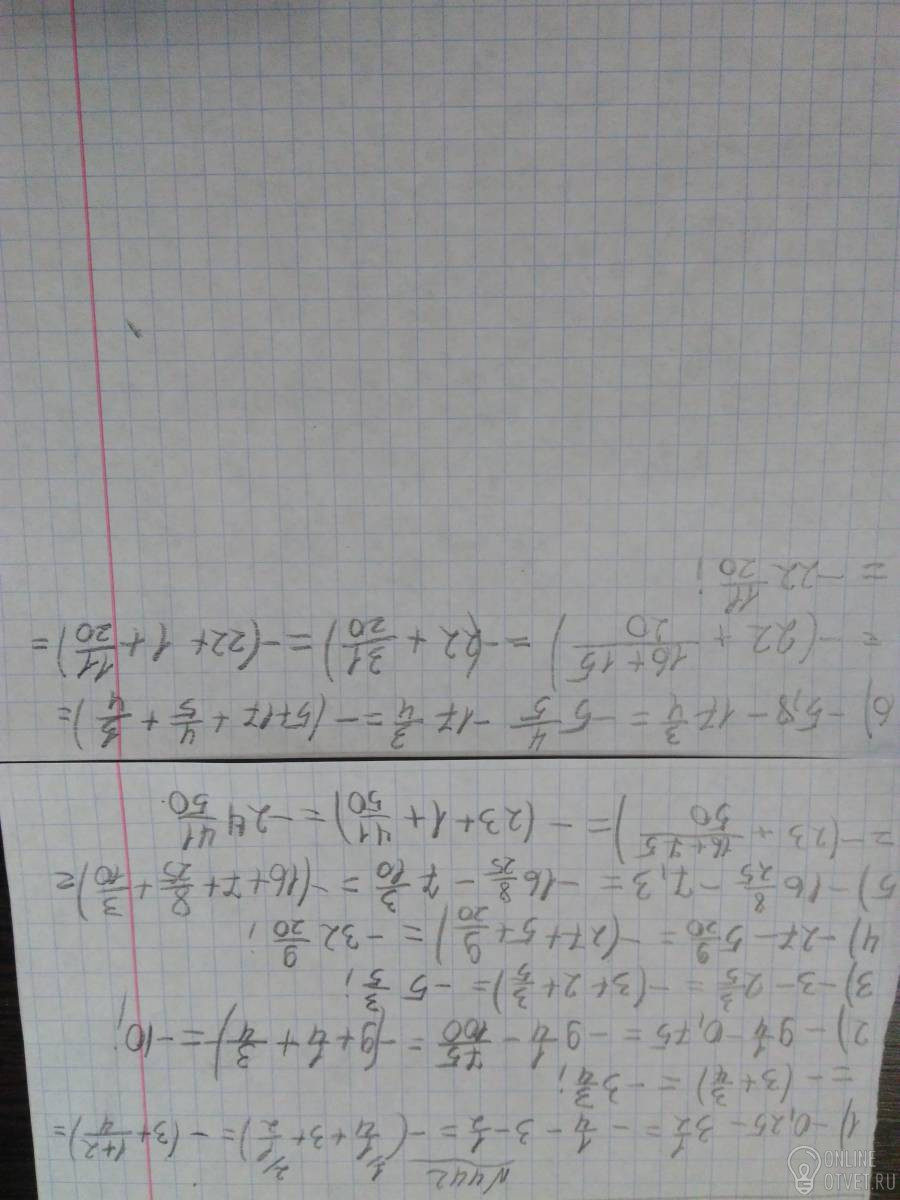 N 442
1) -0,25 - 3 1/2 = - 1/4 - 3 - 1/2 = -(1/4 + 3 + 1/2) = -(3 + (1+2)/4) =
= -(3 + 3/4) = -3 3/4;
2) -9 1/4 - 0,75 = -9 1/4 - 75/100 = -(9 + 1/4 + 3/4) = -10;
3) -3 - 2 3/5 = -(3 + 2 + 3/5) = -5 3/5;
4) -27 - 5 9/20 = -(27 + 5 + 9/20) = -32 9/20;
5) -16 8/25 - 7,3 = -16 8/25 - 7 3/10 = -(16 + 7 + 8/25 + 3/10) =
= -(23 + /50) = -(23 + 1 + 41/50) = -24 41/50
6) -5,8 - 17 3/4 = -5 4/5 - 17 3/4 = -(5+17 + 4/5 + 3/4) =
= -(22 + (16+15)/20) = -(22 + 31/20) = -(22 + 1 + 11/20) =
= -22 11/20;
ONLINE
OTVET.RU